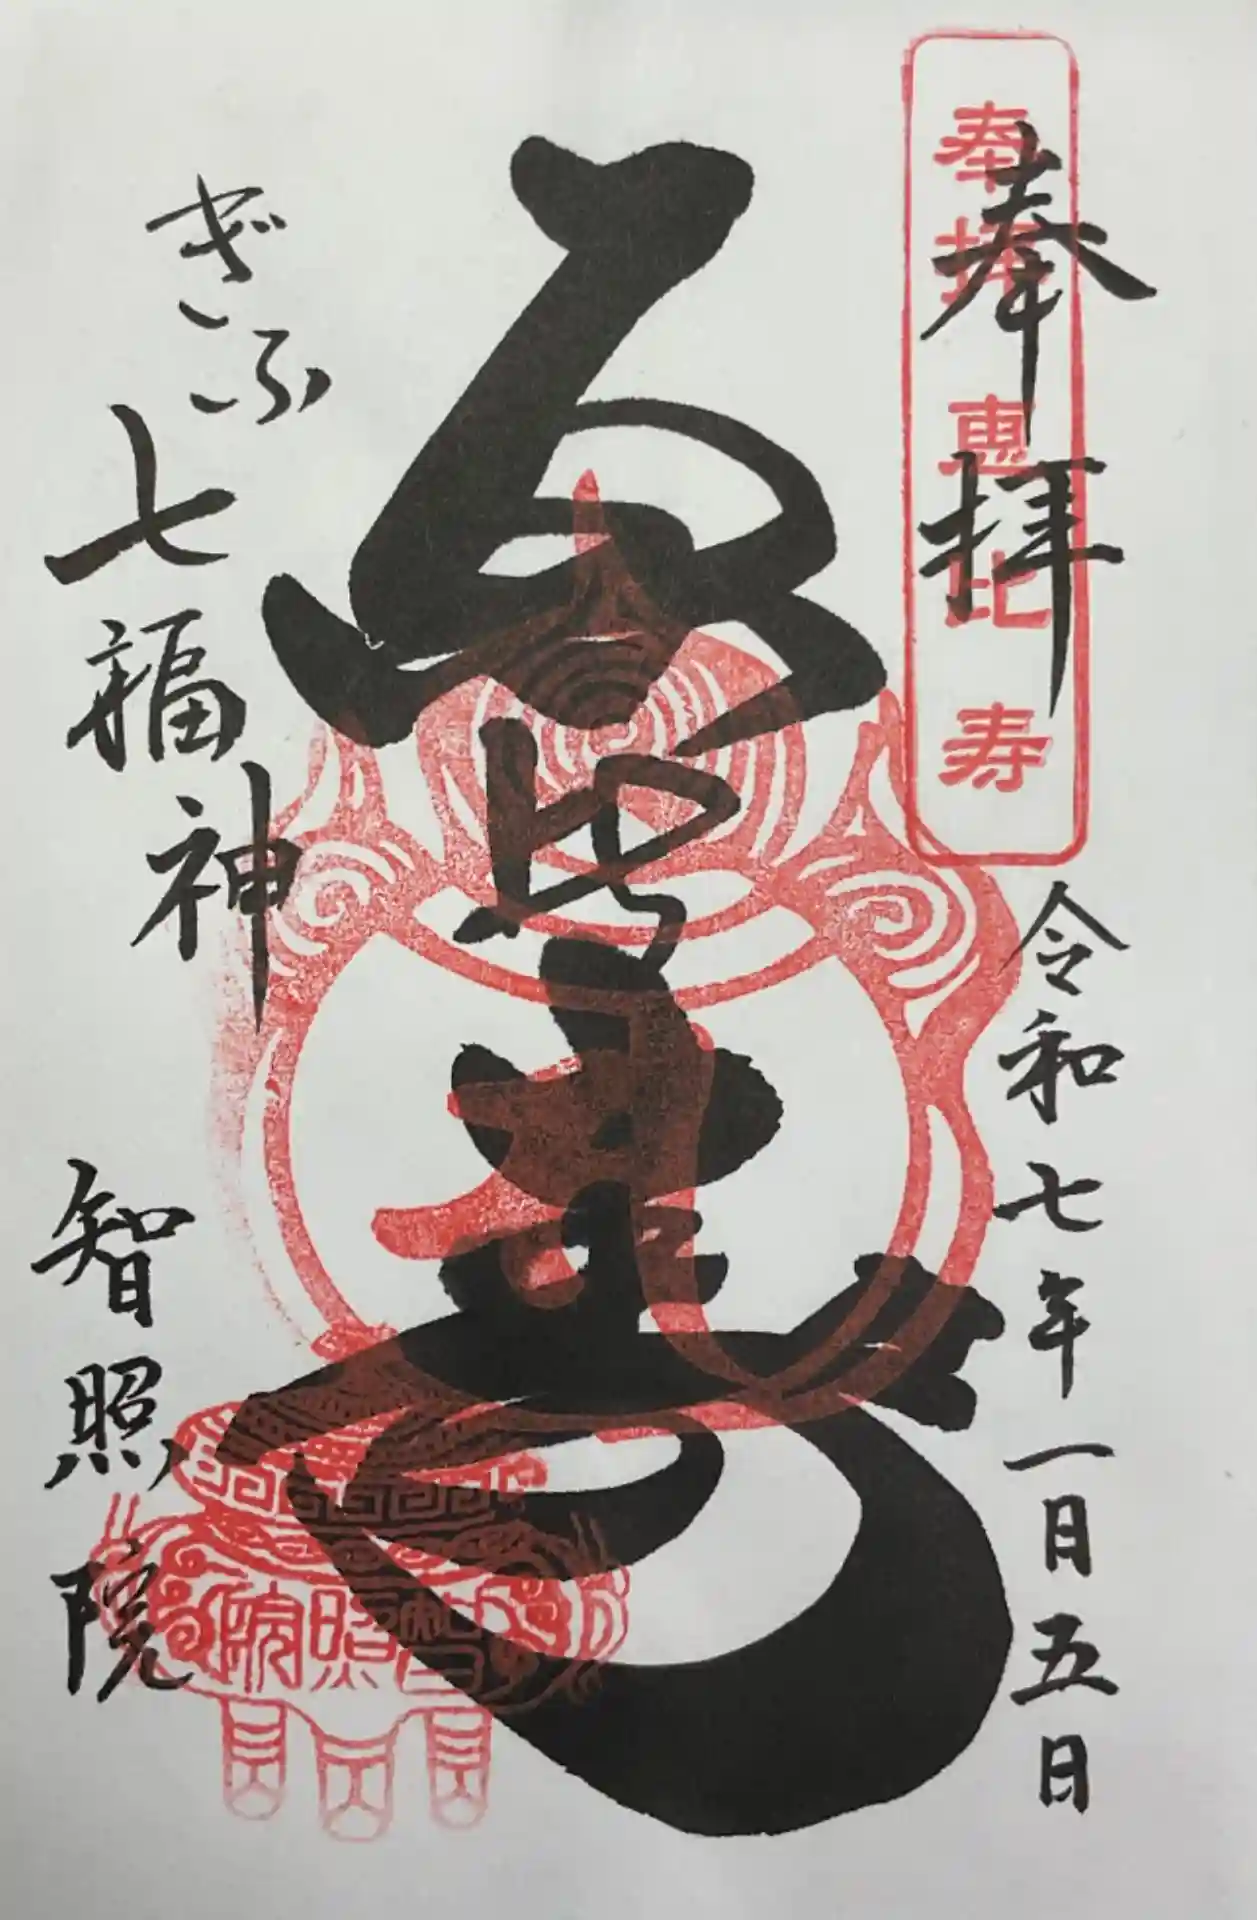 奉拝 恵比寿
奉拝
令和七年一日五日
恵比寿
ぎふ
七福神
智照院
智照院